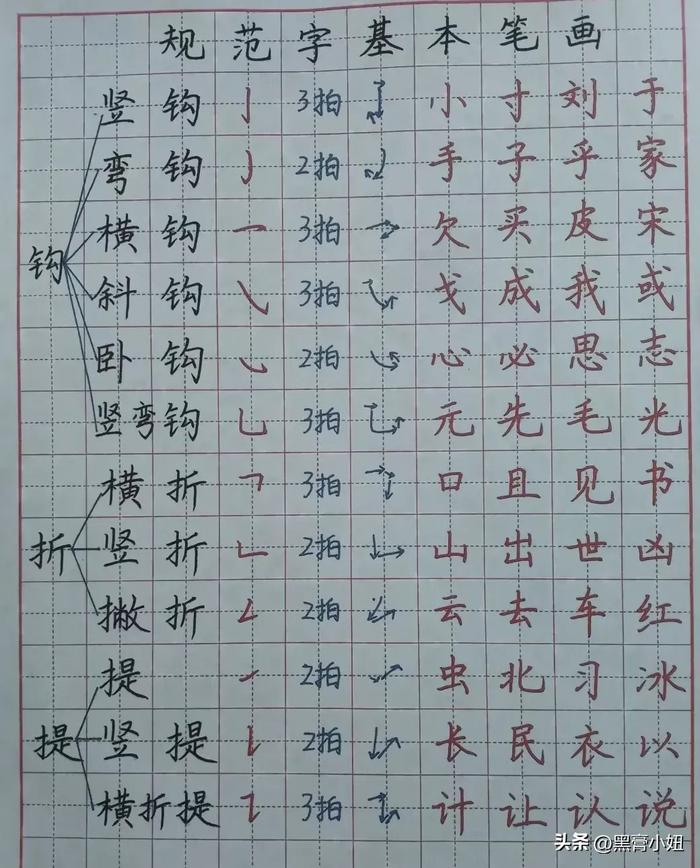 规范字基本笔画
竖钩 亅 3拍 小寸刘于
弯钩 ㇁ 2拍 手子乎家
横钩 ㇖ 3拍 欠买皮宋
钩
斜钩 ㇂ 3拍 戈成我或
卧钩 ㇃ 2拍 心必思志
竖弯钩 ㇟ 3拍 元先毛光
横折 ㇕ 3拍 口且见书
折 竖折 ㇗ 2拍 山出世凶
撇折 ㇜ 2拍 云去车红
提 ㇀ 2拍 虫北习冰
提 竖提 ㇙ 2拍 长民衣以
横折提 ㇊ 3拍 计让认说
头条 @黑膏小妞